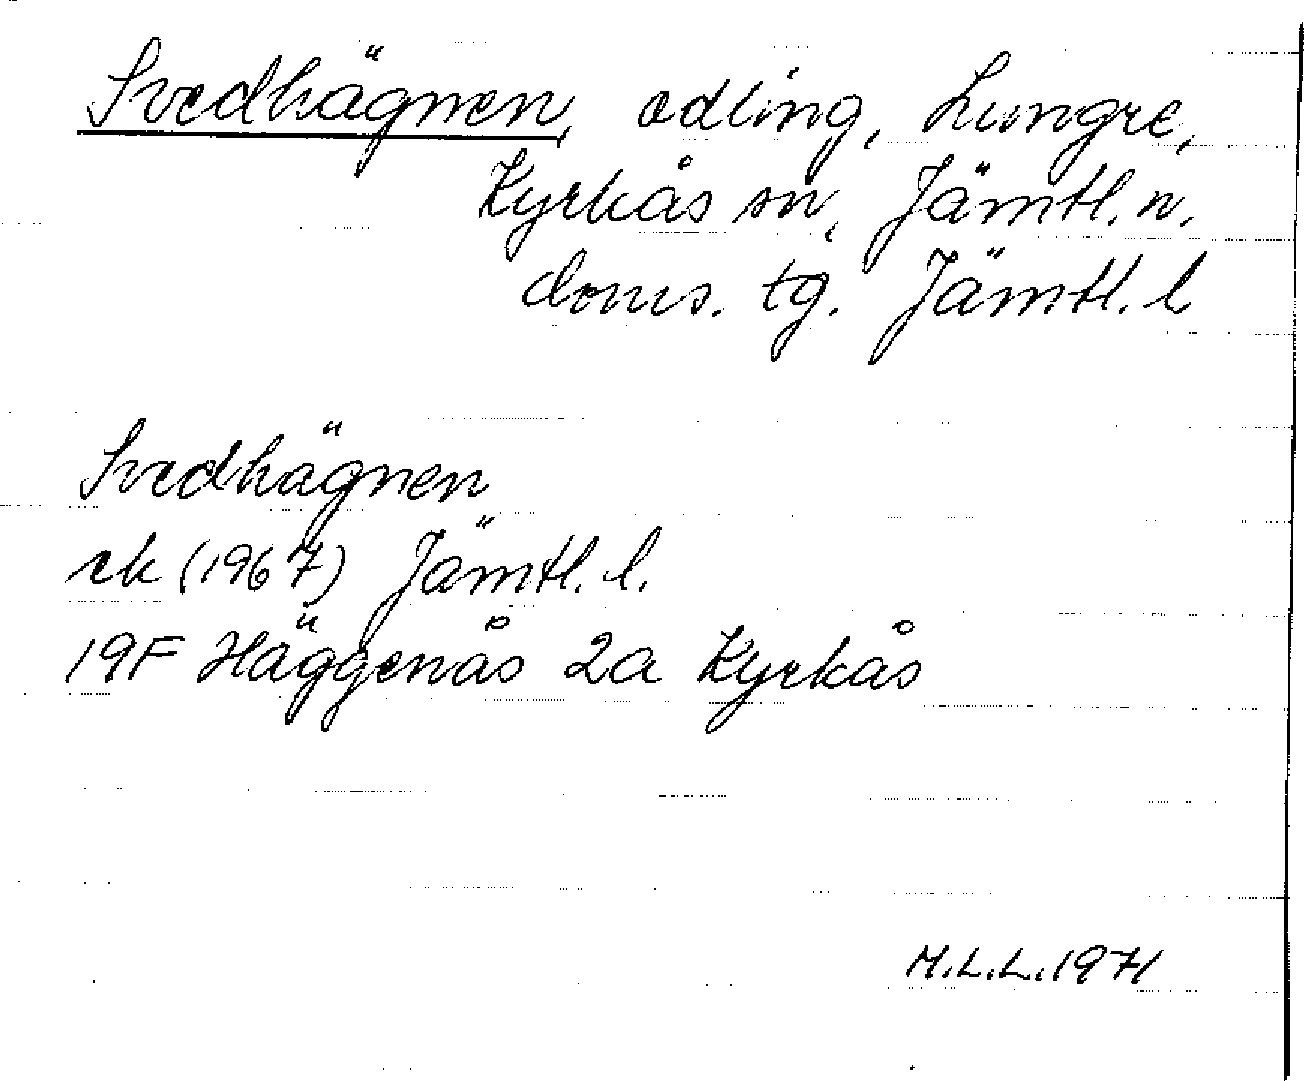 Svedhägnen, odling, Lungre,
Kyrkås sn, Jämtl. n.
doms. tg. Jämtl. l
Svedhägnen
ek (1967) Jämtl. l.
19F Häggenås 2a Kyrkås
M.L.L. 1971